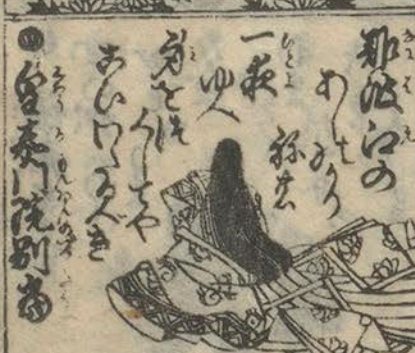 難波江の
あしのかり
ねの
一夜
ゆへ
身をつ
くしてや
こひわたるべき
皇嘉門院別当